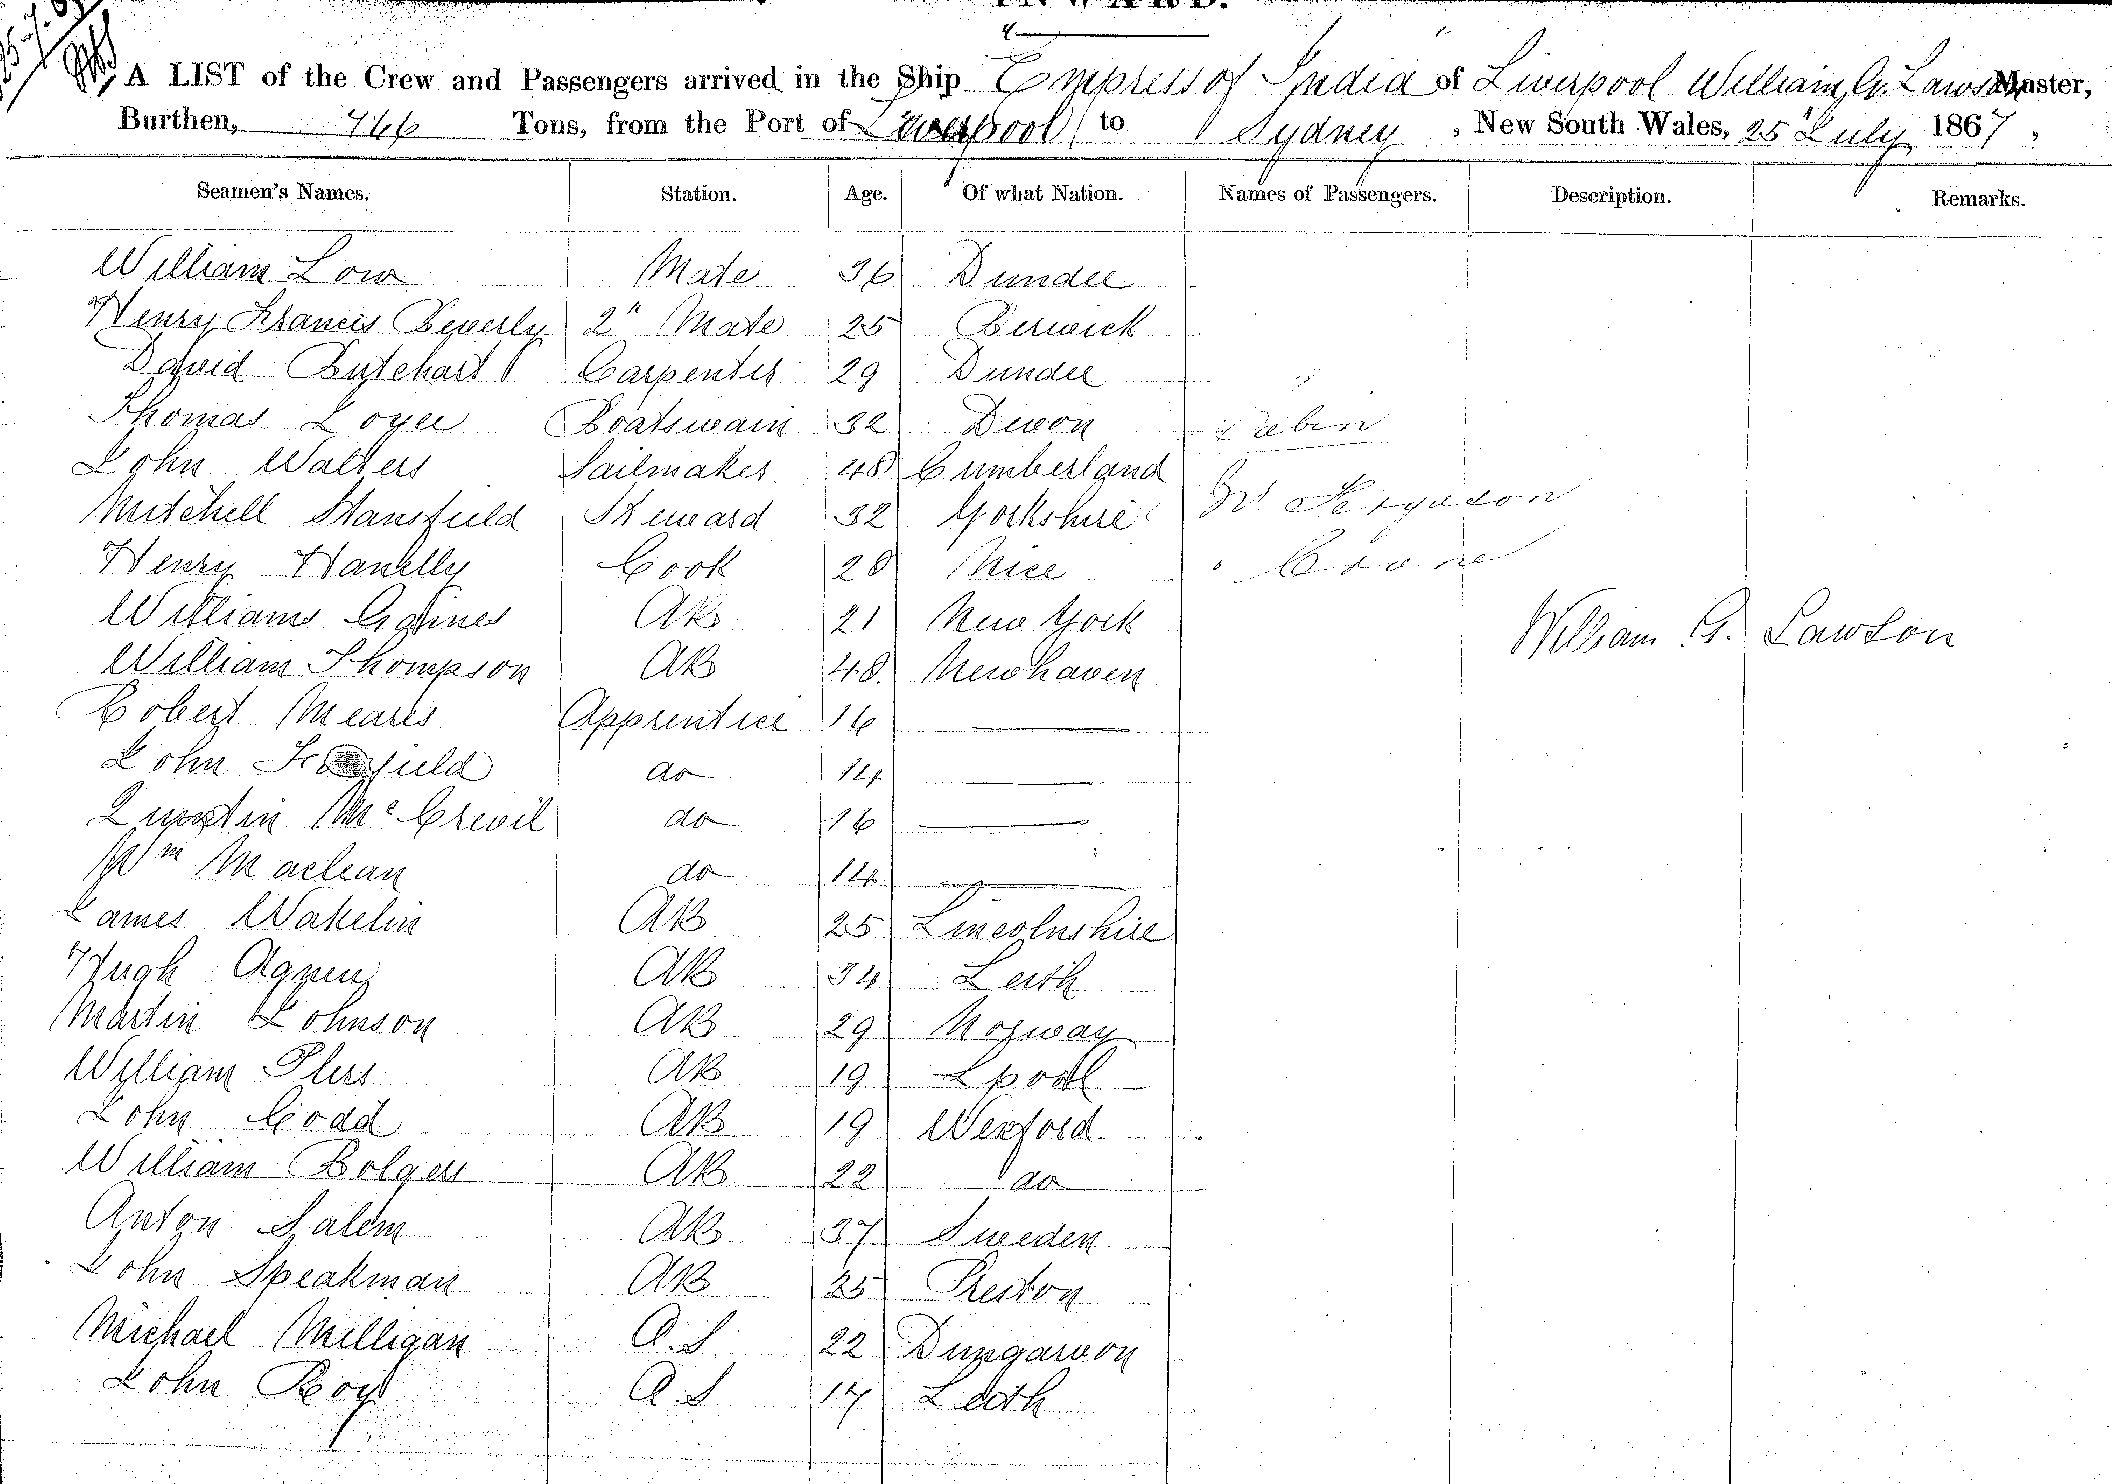 INWARD.
A LIST of the Crew and Passengers arrived in the Ship Empress of India of Liverpool William G. Lawson Master,
Burthen, 766 Tons, from the Port of Liverpool to Sydney, New South Wales, 25 July 1867,
Seamen's Names. Station. Age. Of what Nation. Names of Passengers. Description. Remarks.
William Low Mate 36 Dundee
Henry Francis Beverly 2" Mate 25 Berwick
David Butchart Carpenter 29 Dundee
Thomas Loyee Boatswain 32 Devon Cabin
John Walters Sailmaker 48 Cumberland
Mitchell Stansfield Steward 32 Yorkshire Mr Ferguson
Henry Hanelly Cook 28 Nice " Coone
Williams Gaines AB 21 New York William G. Lawson
William Thompson AB 48 Newhaven
Robert Meares Apprentice 16
John do 14
Quintin McCrevil do 16
Wm Maclean do 14
James Wakelin AB 25 Lincolnshire
Hugh Agnew AB 34 Leith
Martin Johnson AB 29 Norway
William Pless AB 19 Lpool
John Codd AB 19 Wexford
William Bolger AB 22 do
Anton Salem AB 37 Sweden
John Speakman AB 25 Preston
Michael Milligan O.S 22 Dungarvon
John Roy O.S 17 Leith